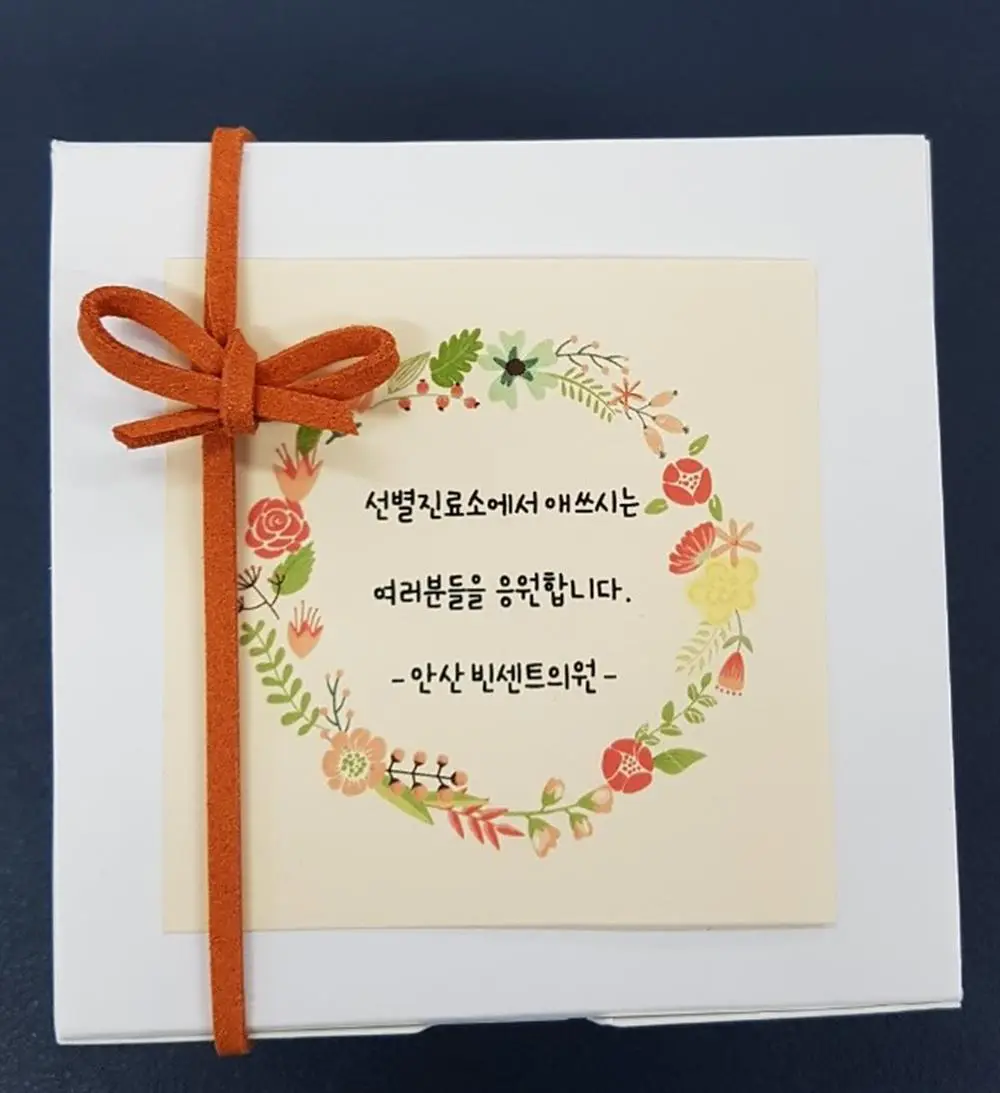 선별진료소에서 애쓰시는
여러분들을 응원합니다.
- 안산 빈센트의원 -